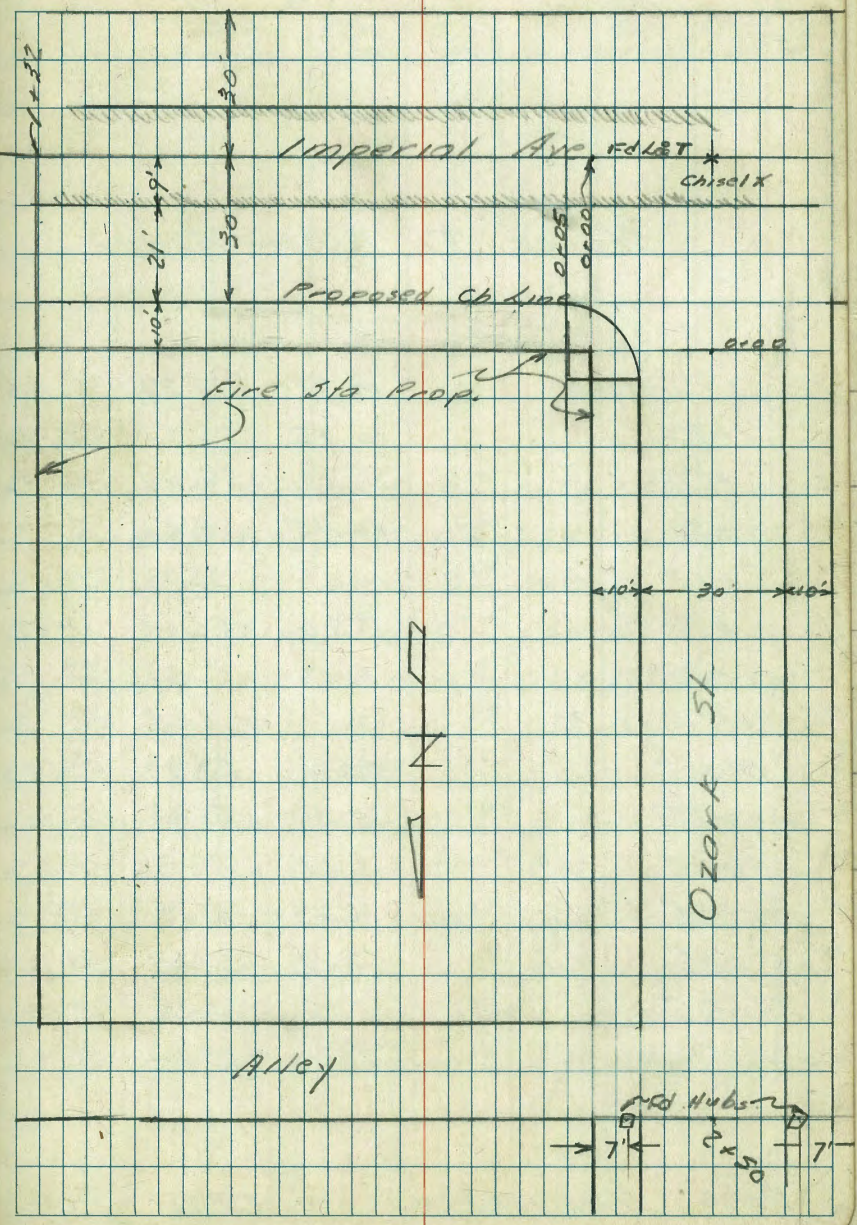 1+32
30'
Imperial Ave.
Fd L&T
Chisel X
9'
21'
30
10'
0+05
0+00
Proposed Cb Line
0+00
Fire Sta. Prop.
10' 30 10'
N
Ozark St.
Alley
Fd Hubs
7'
7'